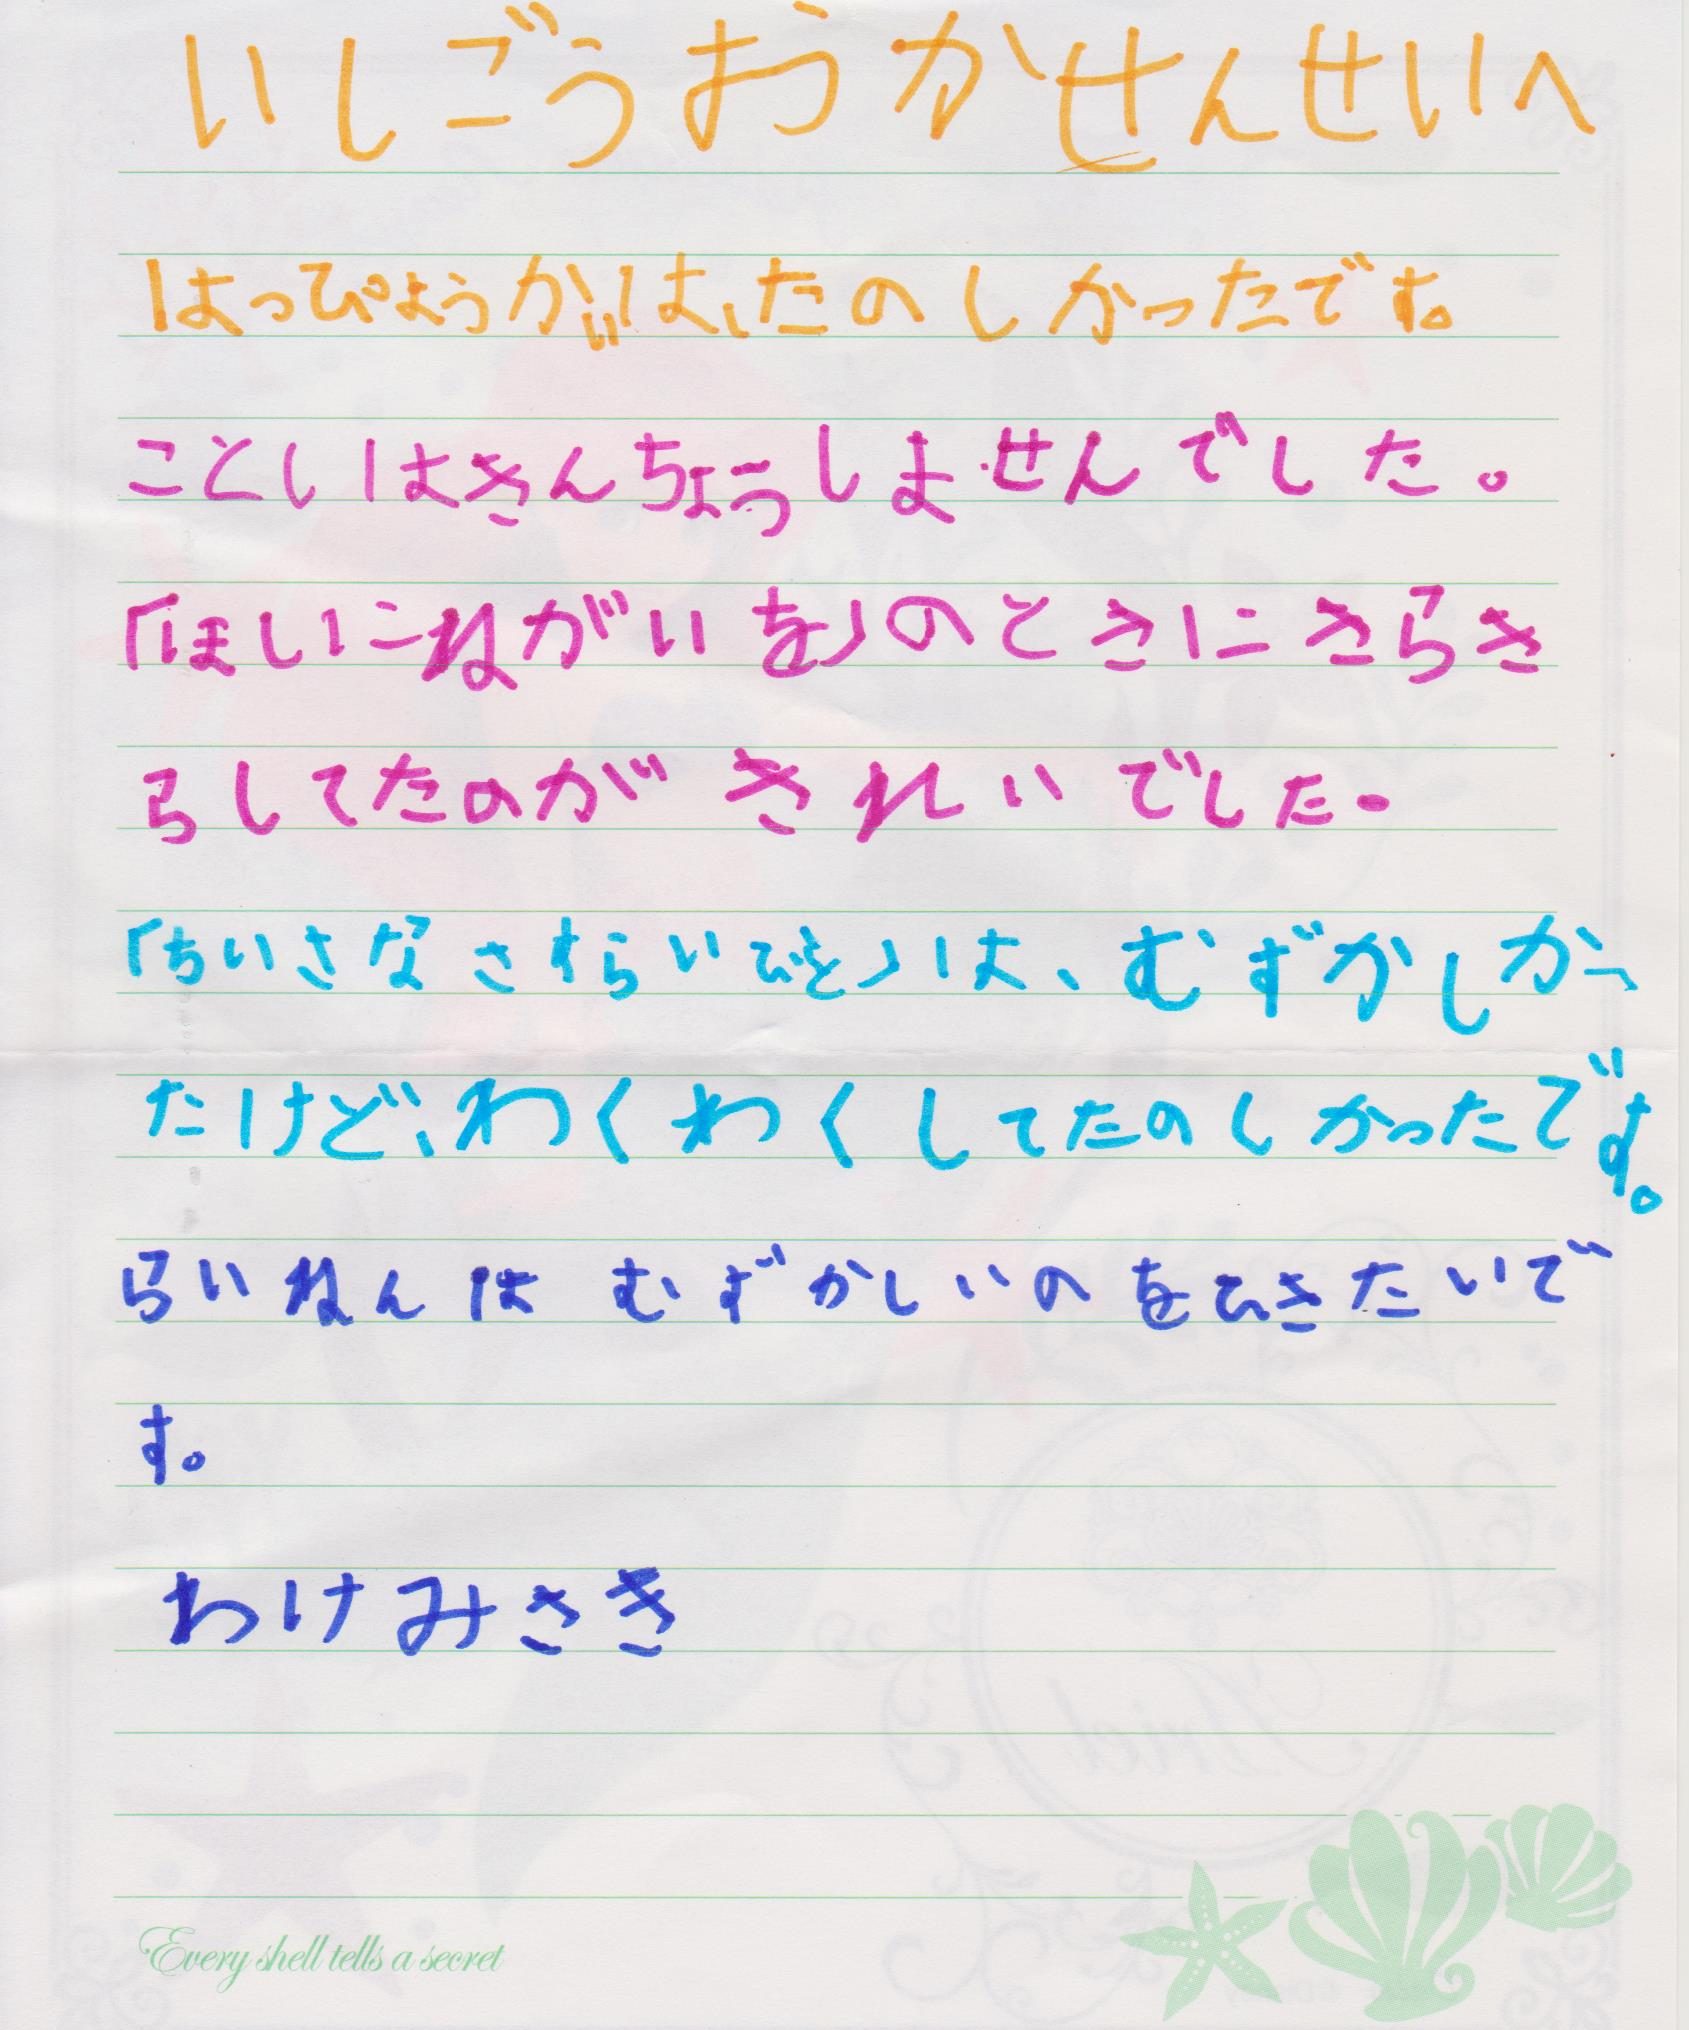 いしごうおかせんせいへ
はっぴょうかいは、たのしかったです。
ことしはきんちょうしませんでした。
「ほしにねがいを」のときにきらき
らしてたのがきれいでした。
「ちいさなさすらいびと」は、むずかしかっ
たけど、わくわくしてたのしかったです。
らいねんはむずかしいのをひきたいで
す。
わけみさき
Every shell tells a secret